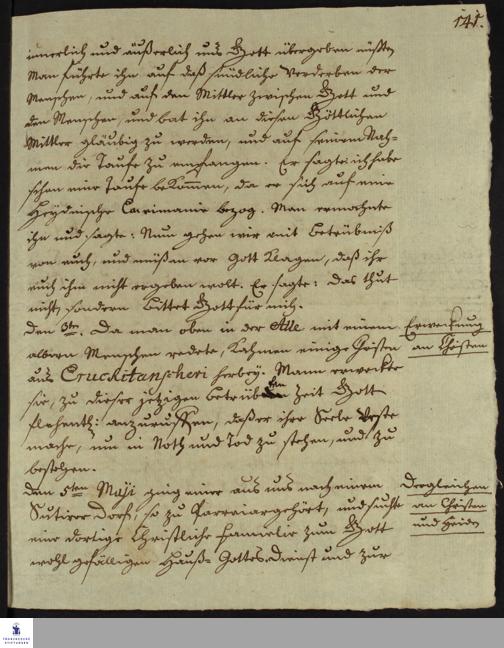 141.
innerlich und äußerlich uns Gott übergeben müßten
Man führte ihn auf das sündliche Verderben der
Menschen, und auf den Mittler zwischen Gott und
den Menschen, und bat ihn an diesen Göttlichen
Mittler gläubig zu werden, und auf seinen Nah-
men die Taufe zu empfangen. Er sagte: ich habe
schon eine Taufe bekommen, da er sich auf eine
Heydnische Cærimonie bezog. Man ermahnte
ihn und sagte: Nun gehen wir mit Betrübniß
von euch, und müßen vor Gott klagen, daß ihr
euch ihm nicht ergeben wolt. Er sagte: Das thut
nicht, sondern bittet Gott für mich.
Den 3ten. Da man oben in der Allee mit einem
Erweckung
albern Menschen redete, kahmen einige Christen
an Christen
aus Cruckitanscheri herbey. Man erweckte
sie, zu dieser jetzigen betrübten Zeit Gott
flehentl: anzuruffen, daß er ihre Seele veste
mache, um in Noth und Tod zu stehen, und zu
bestehen.
Den 5ten Maji ging einer aus uns nach einem
Dergleichen
Dorf, so zu gehört, und suchte
an Christen
eine dortige Christliche Familie zum Gott
und Heiden
wohl gefälligen Hauß-Gottes-Dienst und zur
FRANCKESCHE
STIFTUNGEN